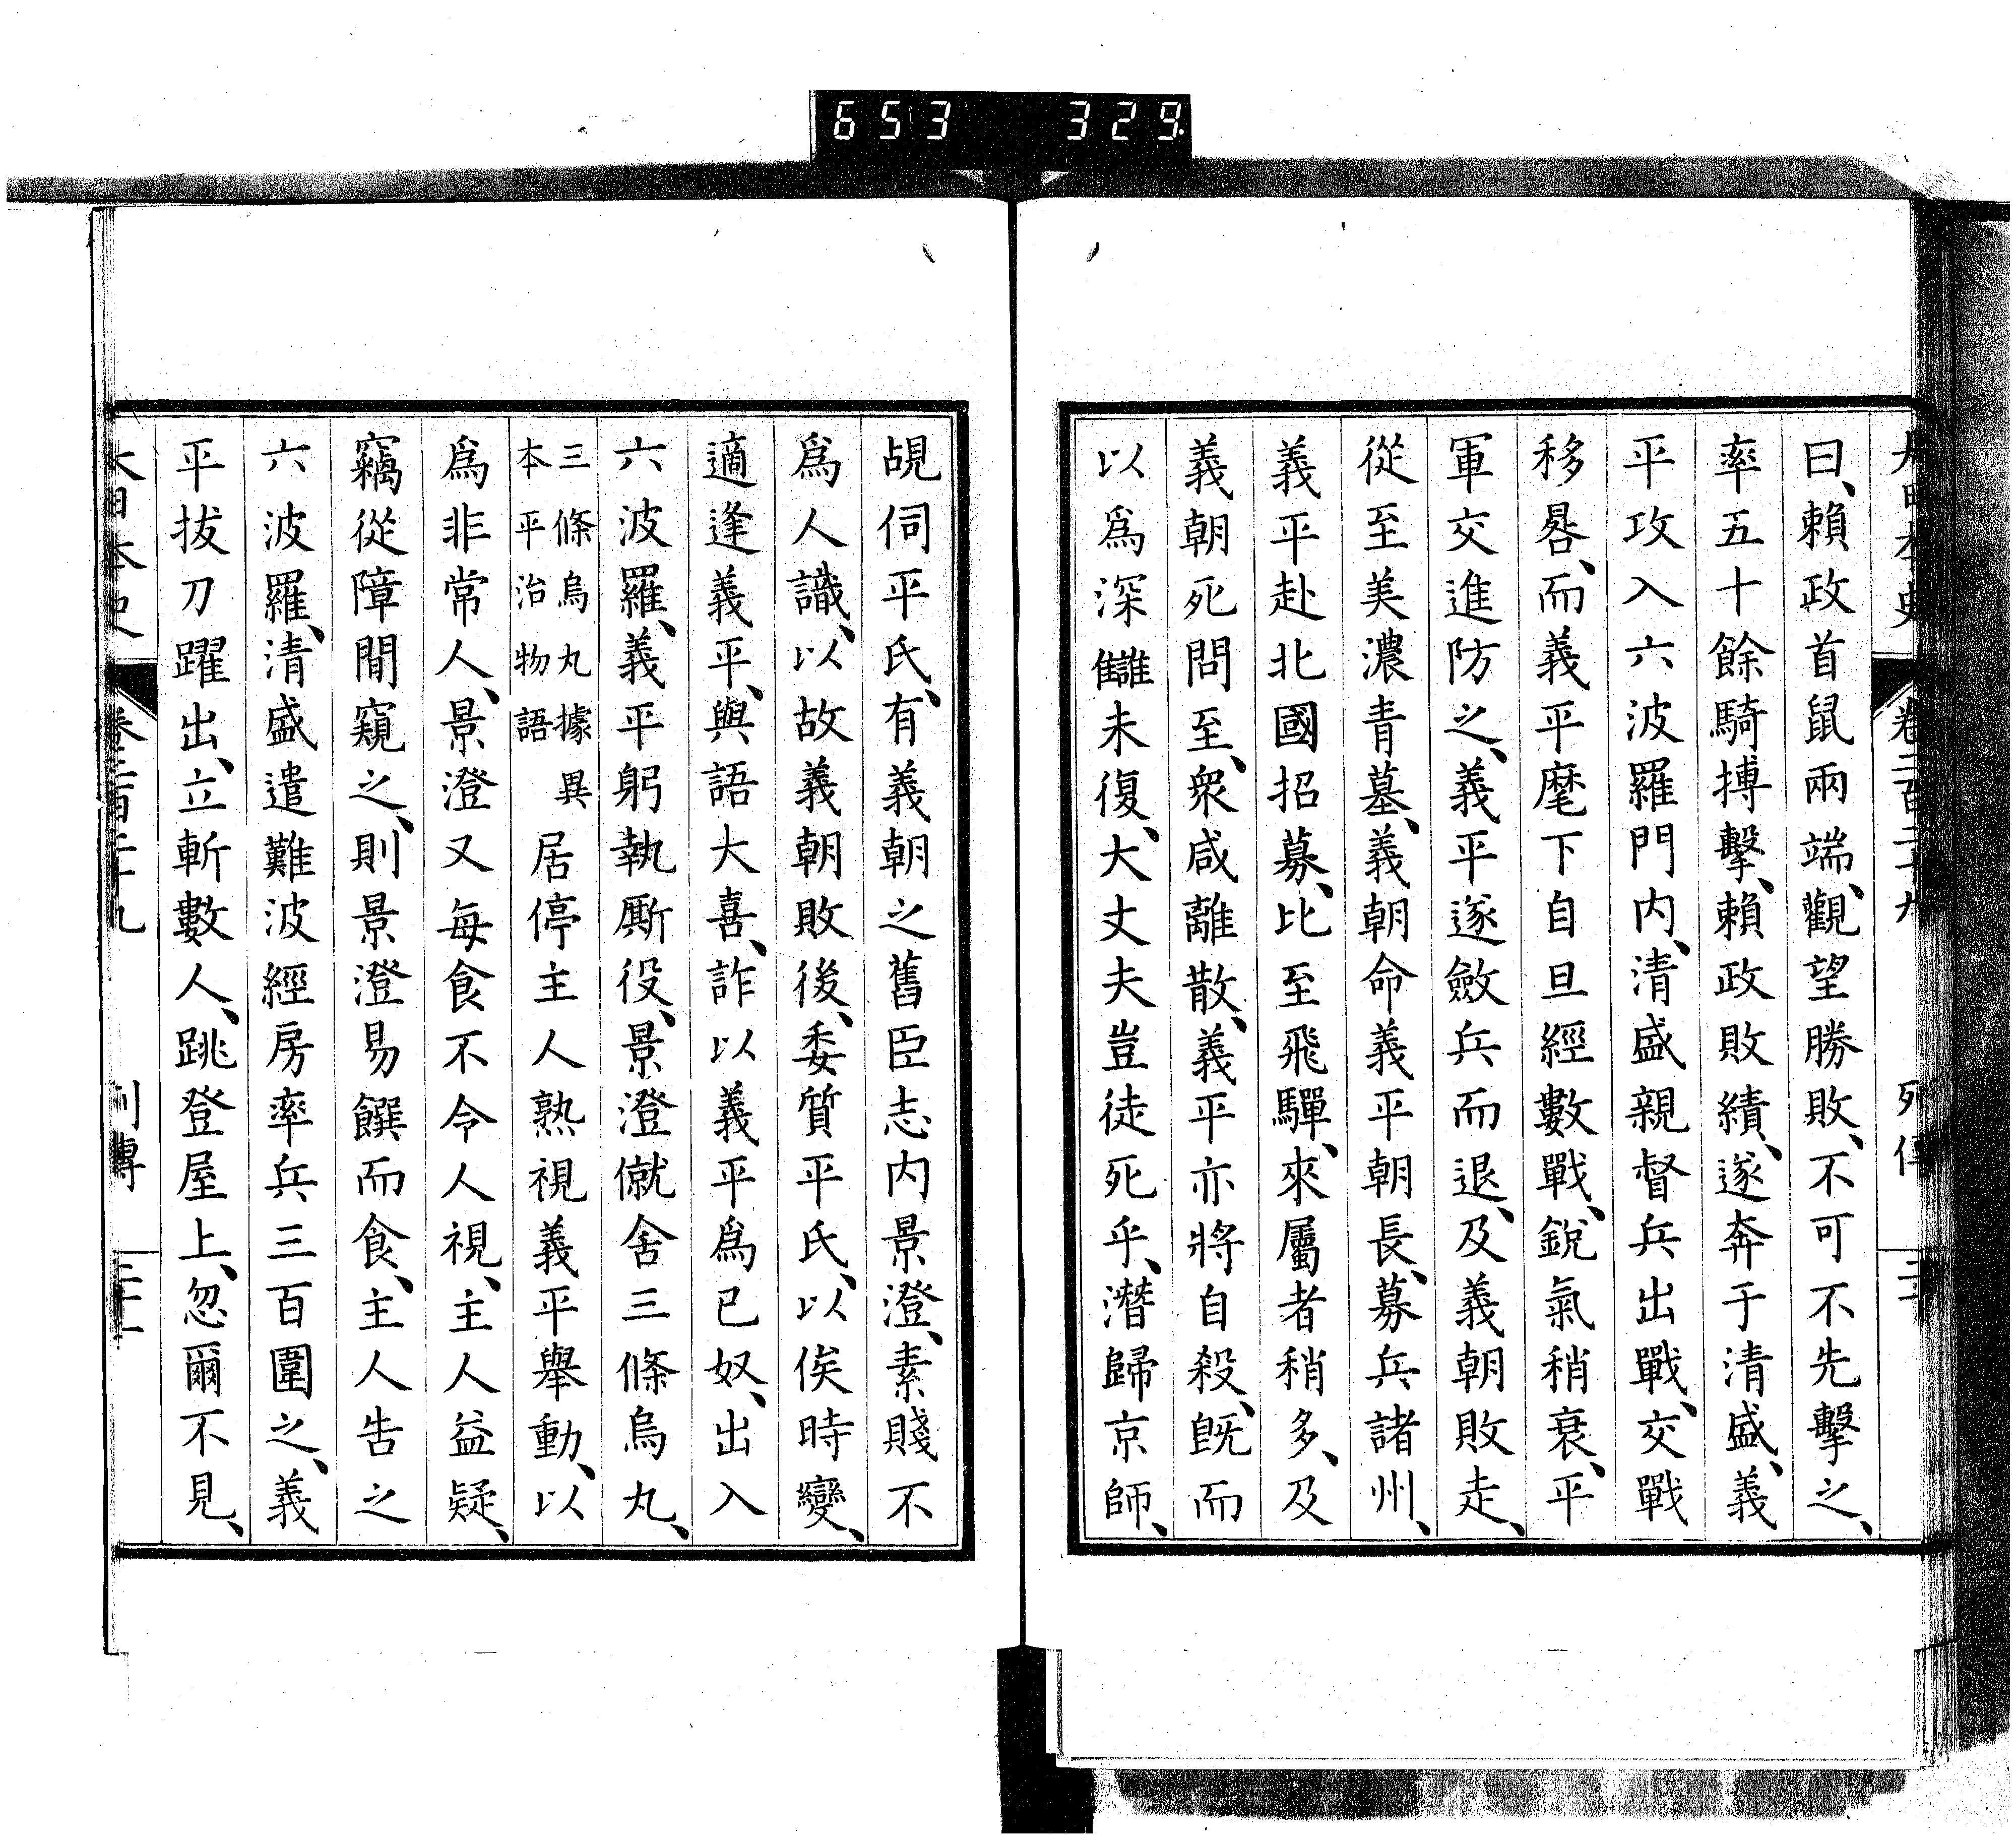 653 329
大日本史 卷二百二十九 列傳
曰、賴政首鼠兩端、觀望勝敗、不可不先擊之、
率五十餘騎搏擊、賴政敗績、遂奔于清盛、義
平攻入六波羅門内、清盛親督兵出戰、交戰
移晷、而義平麾下自旦經數戰、銳氣稍衰、平
軍交進防之、義平遂斂兵而退、及義朝敗走、
從至美濃青墓、義朝命義平朝長、募兵諸州、
義平赴北國招募、比至飛驒、來屬者稍多、及
義朝死問至、衆咸離散、義平亦將自殺、旣而
以爲深讎未復、大丈夫豈徒死乎、潛歸京師、
覘伺平氏、有義朝之舊臣志内景澄、素賤不
爲人識、以故義朝敗後、委質平氏、以俟時變、
適逢義平、與語大喜、詐以義平爲已奴、出入
六波羅、義平躬執厮役、景澄僦舍三條烏丸、
三條烏丸據異
本平治物語
居停主人熟視義平舉動、以
爲非常人、景澄又每食不令人視、主人益疑、
竊從障間窺之、則景澄易饌而食、主人告之
六波羅、清盛遣難波經房率兵三百圍之、義
平拔刀躍出、立斬數人、跳登屋上、忽爾不見、
大日本史 卷二百二十九 列傳